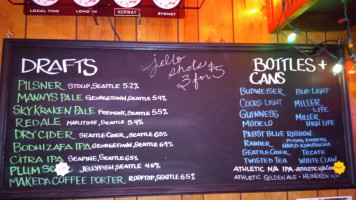 LOCAL TIME LONDON NORWAY SYDNEY
DRAFTS
PILSNER STOUP, SEATTLE 5.2%
MANNYS PALE GEORGETOWN, SEATTLE 5.4%
SKY KRAKEN PALE FREMONT, SEATTLE 5.5%
REDALE MARITIME, SEATTLE 5.4%
DRY CIDER SEATTLE CIDER, SEATTLE 6.5%
BODHIZAFA IPA GEORGETOWN, SEATTLE 6.9%
CITRA IPA SEAPINE, SEATTLE 6.5%
PLUM JELLYFISH, SEATTLE 4.5%
MAKEDA COFFEE PORTER ROOFTOP, SEATTLE 6.5%
jello shots $5
3 for
BOTTLES +
CANS
BUDWEISER BUD LIGHT
COORS LIGHT MILLER LIFE
GUINNESS MILLER
MODELO HIGH LIFE
PABST BLUE RIBBON
RAINIER HARD KOMBUCHA
SEATTLE CIDER TECATE
TWISTED TEA WHITE CLAW
ATHLETIC N/A IPA
ATHLETIC GOLDEN ALE - HEINEKEN